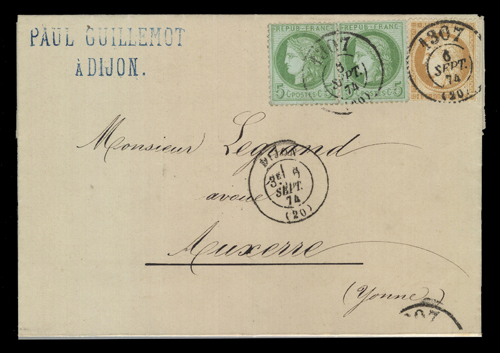 PAUL GUILLEMOT
À DIJON.
REPUB. FRANC.
REPUB. FRANC.
5 C POSTES C 5
1307
SEPT.
74
(20)
1307
6
SEPT.
74
(20)
Monsieur Legrand
avoué
Auxerre
(Yonne)
DIJON
SEPT.
74
(20)